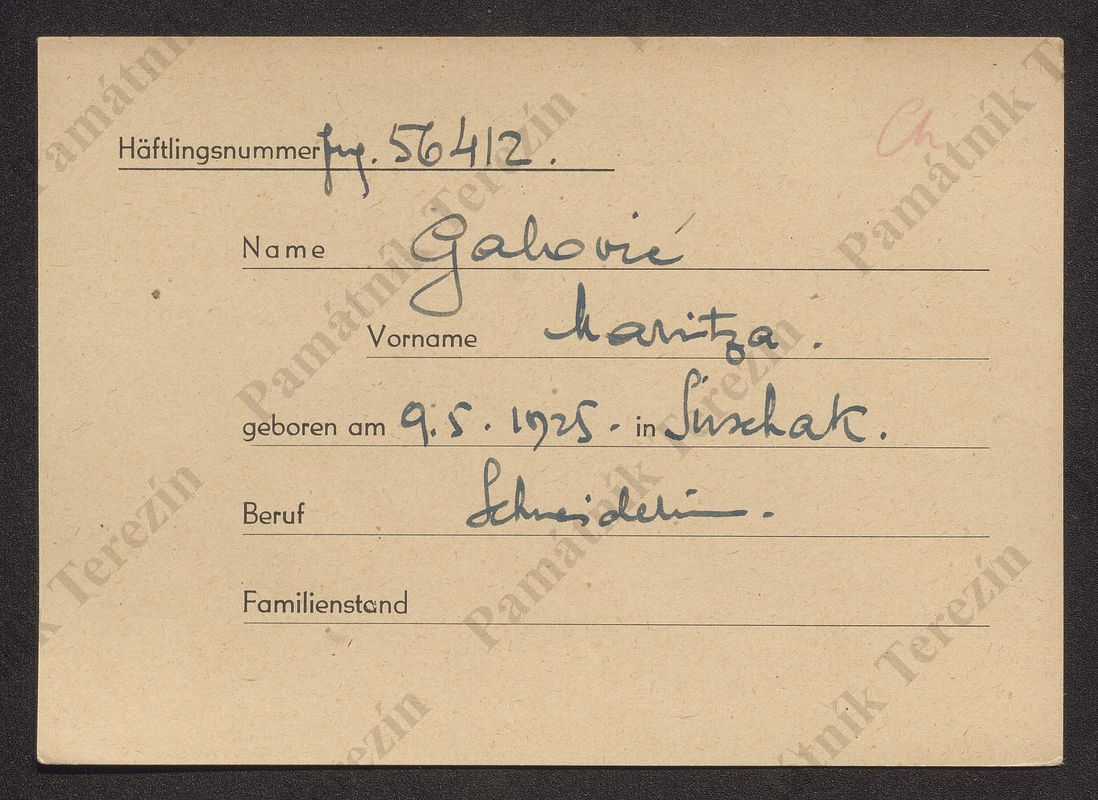 Ch
Häftlingsnummer Jug. 56412.
Name Gahović
Vorname Maritza.
geboren am 9.5. 1925. in Suschak.
Beruf Schneiderin.
Familienstand
Památník Terezín